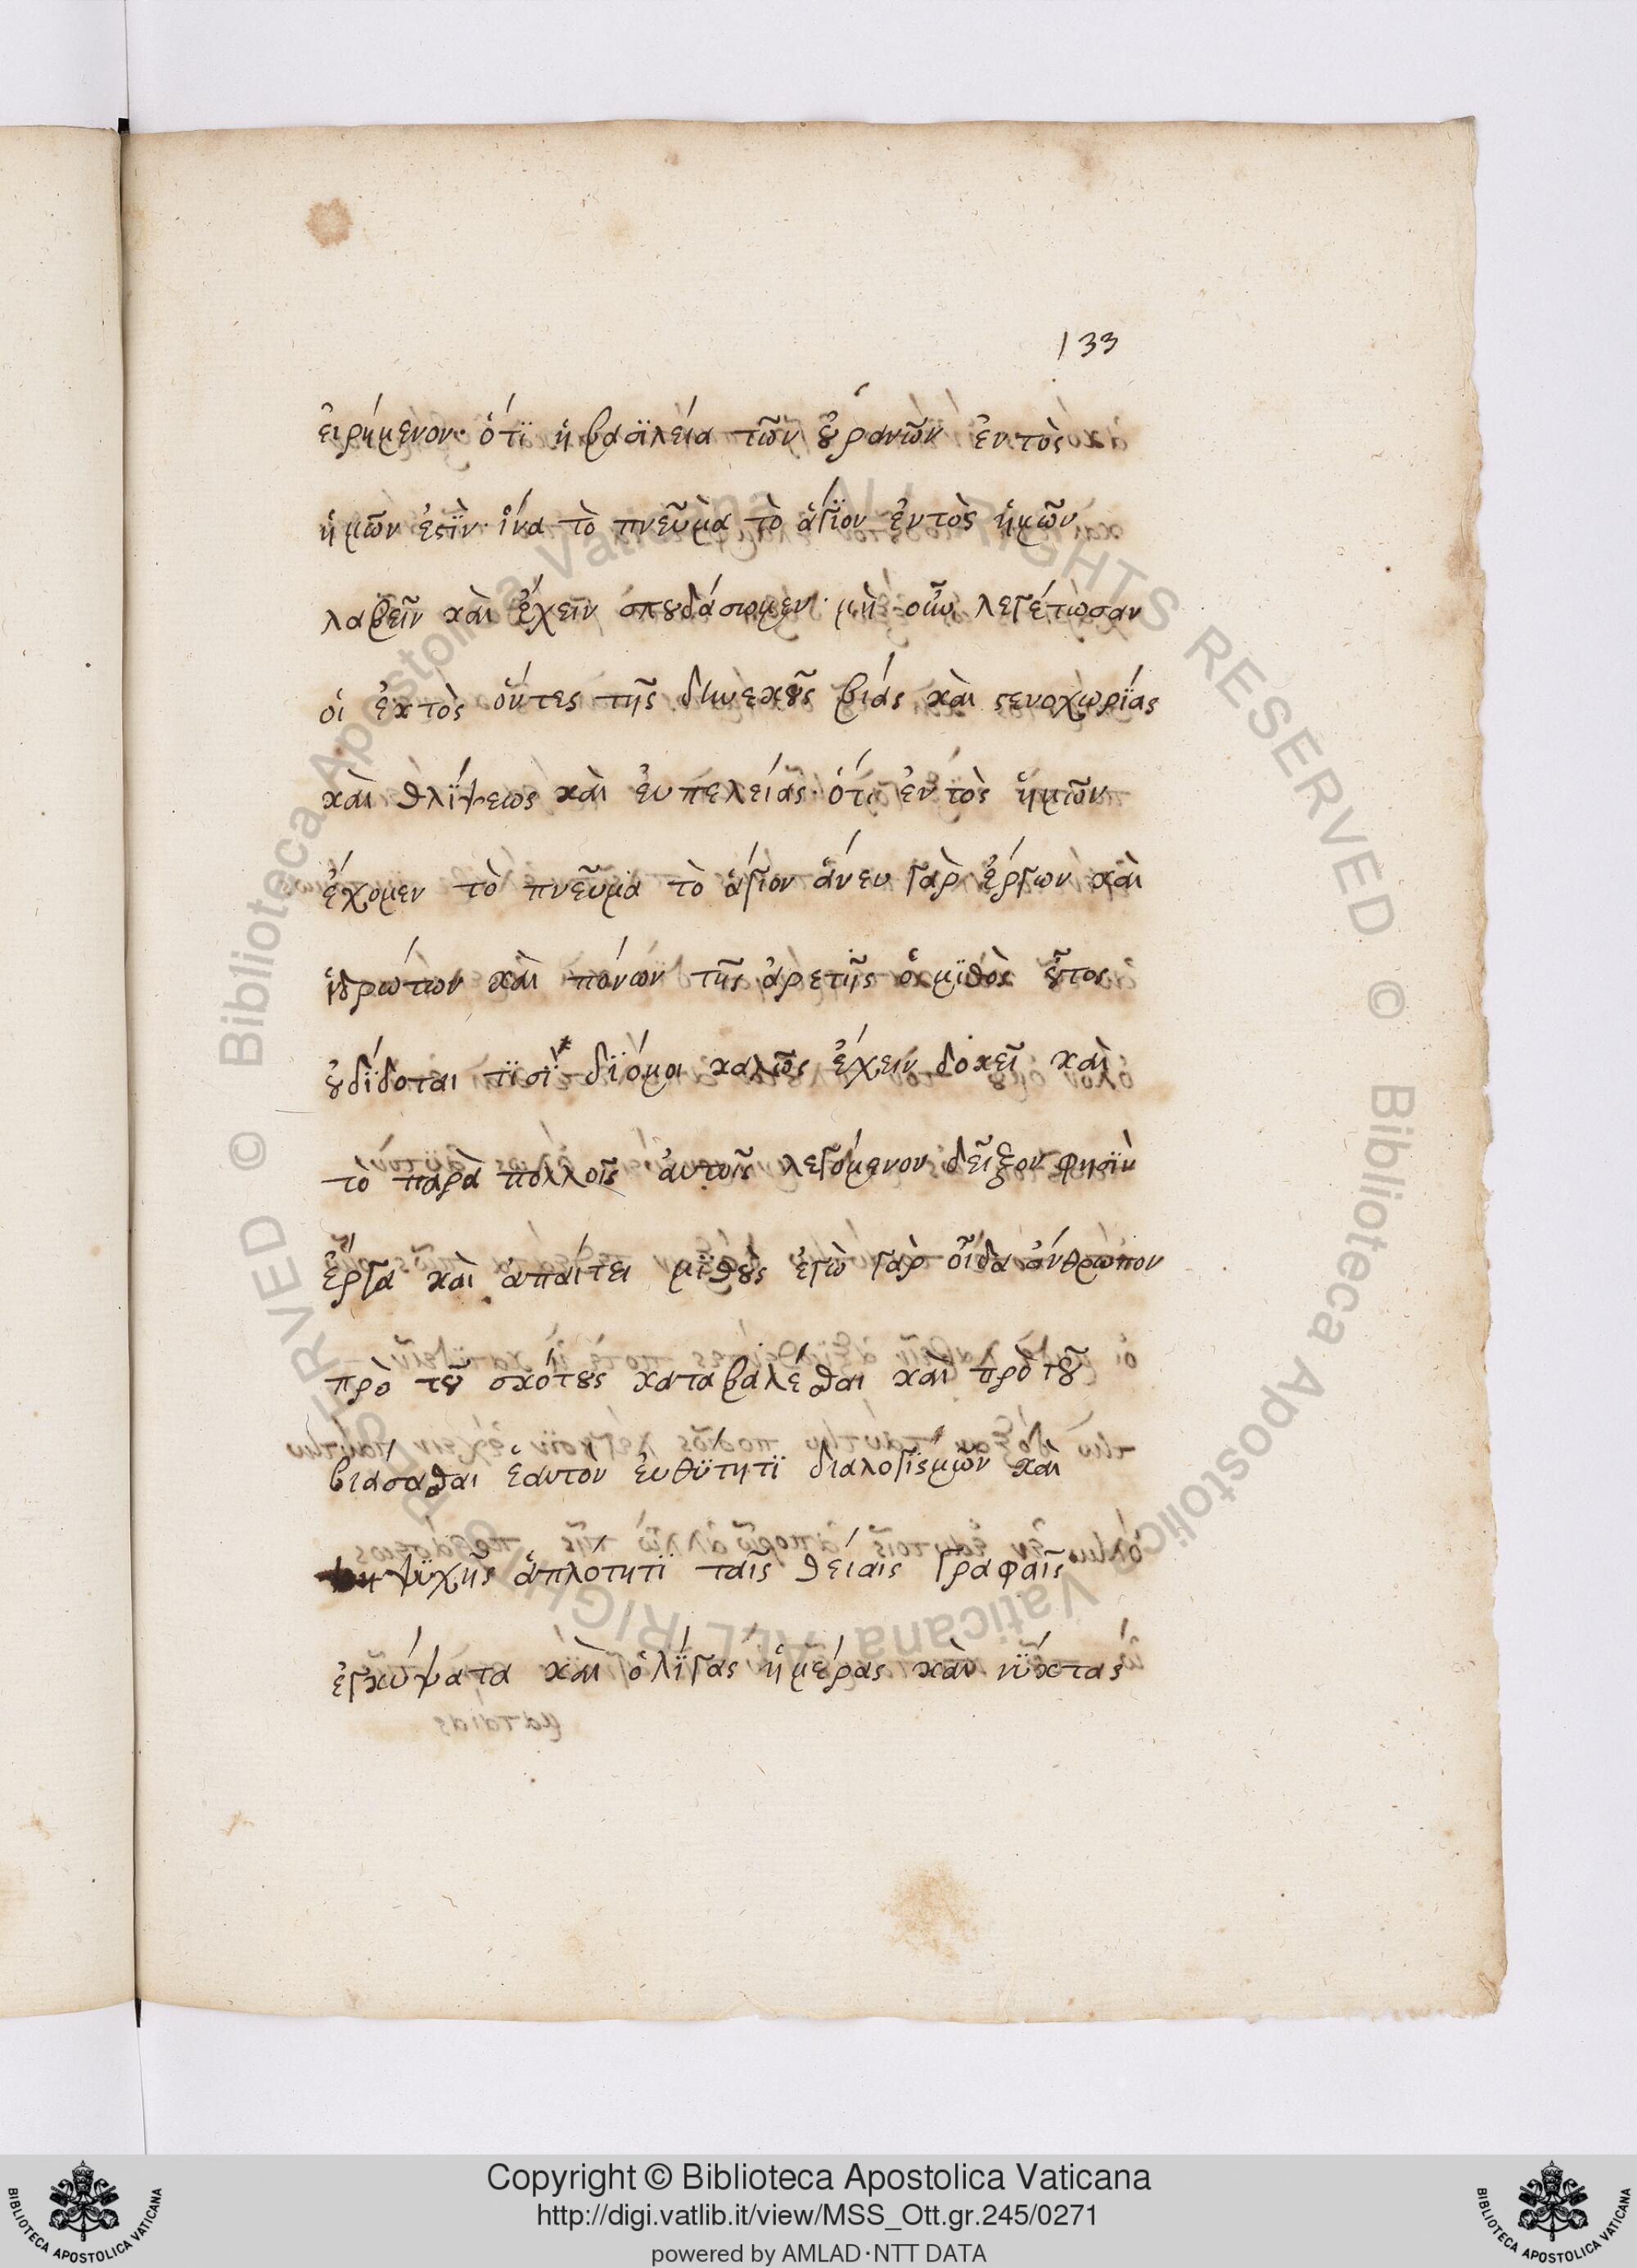 133
εἰρήμενον· ὅτϊ ἡ βασϊλεία τῶν ȣ̓ρανῶν ἐντὸς
ἡμῶν ἐςϊν· ἵνα τὸ πνεῦμα τὸ ἅγϊον ἐντὸς ἡμῶν
λαβεῖν καὶ ἔχειν σπȣδάσωμεν· μὴ οὖν λεγέτωσαν
οἱ ἐκτὸς ὄντες τῆς διηνεκȣ͂ς βιάς καὶ ςενοχωρϊάς
καὶ θλΐψεως καὶ ἐυπελείας· ὅτι ἐντὸς ἡμῶν
ἔχομεν τὸ πνεῦμα τὸ ἅγιον ἄνευ γὰρ ἔργων καὶ
ἱδρώτων καὶ πόνων τῆς ἀρετῆς ὁ μϊθὸς ȣ̓͂τος
ȣ̓δΐδοται τϊσῒ δϊόμοι καλῶς ἔχειν δοκεῖ καὶ
τὸ παρὰ πολλοῖς ἀυτοῖς λεγόμενον δεῖξον φησϊν
ἔργα καὶ ἀπαίτει μϊθȣ̀ς ἐγὼ γὰρ οἶδα ἄνθρωπον
πρὸ τȣ͂ σκότȣς καταβαλέσθαι καὶ πρὸ τȣ͂
βιασασθαι ἑαυτὸν ἐυθϋτητϊ διαλογϊςμῶν καὶ
ψϋχῆς ἁπλοτητϊ ταῖς θείαις Γραφαῖς
ἐγκύψατα καὶ ὀλΐγας ἡμέρας καὶ νΰκτας
Copyright © Biblioteca Apostolica Vaticana
http://digi.vatlib.it/view/MSS_Ott.gr.245/0271
powered by AMLAD·NTT DATA
BIBLIOTECA APOSTOLICA VATICANA
BIBLIOTECA APOSTOLICA VATICANA
© Biblioteca Apostolica Vaticana ALL RIGHTS RESERVED
© Biblioteca Apostolica Vaticana ALL RIGHTS RESERVED